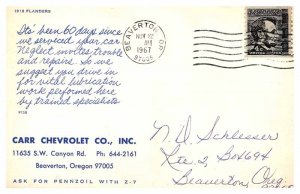 1918 FLANDERS
It's been 60 days since
we serviced your car.
Neglect invites trouble
and repairs. So we
suggest you drive in
for vital lubrication
work performed here
by trained specialists
BEAVERTON, OR
NOV 22
AM
1967
97005
CARR CHEVROLET CO., INC.
11635 S.W. Canyon Rd. Ph: 644-2161
Beaverton, Oregon 97005
ASK FOR PENNZOIL WITH Z-7
N. D. Schlesser
Rte. 2, Box 694
Beaverton, Oreg.